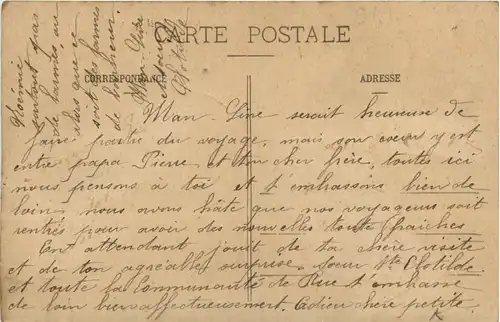 CARTE POSTALE
CORRESPONDANCE
ADRESSE
Man-Line serait heureuse de
faire partie du voyage, mais son cœur y est
entre papa Pierre et ton cher frère, toutes ici
nous pensons à toi et t'embrassons bien de
loin, nous avons hâte que nos voyageurs soit
rentrés pour avoir des nouvelles toute fraiches
En attendant jouit de ta chère visite
et de ton agréable surprise. Sœur Ste Clotilde
et toute la Communauté de Rue t'embrasse
de loin bien affectueusement. Adieu chère petite
Noémie
surtout pas
de larmes, ou
alors que ce
soit des larmes
de bonheur.
Man-Line
Clotilde